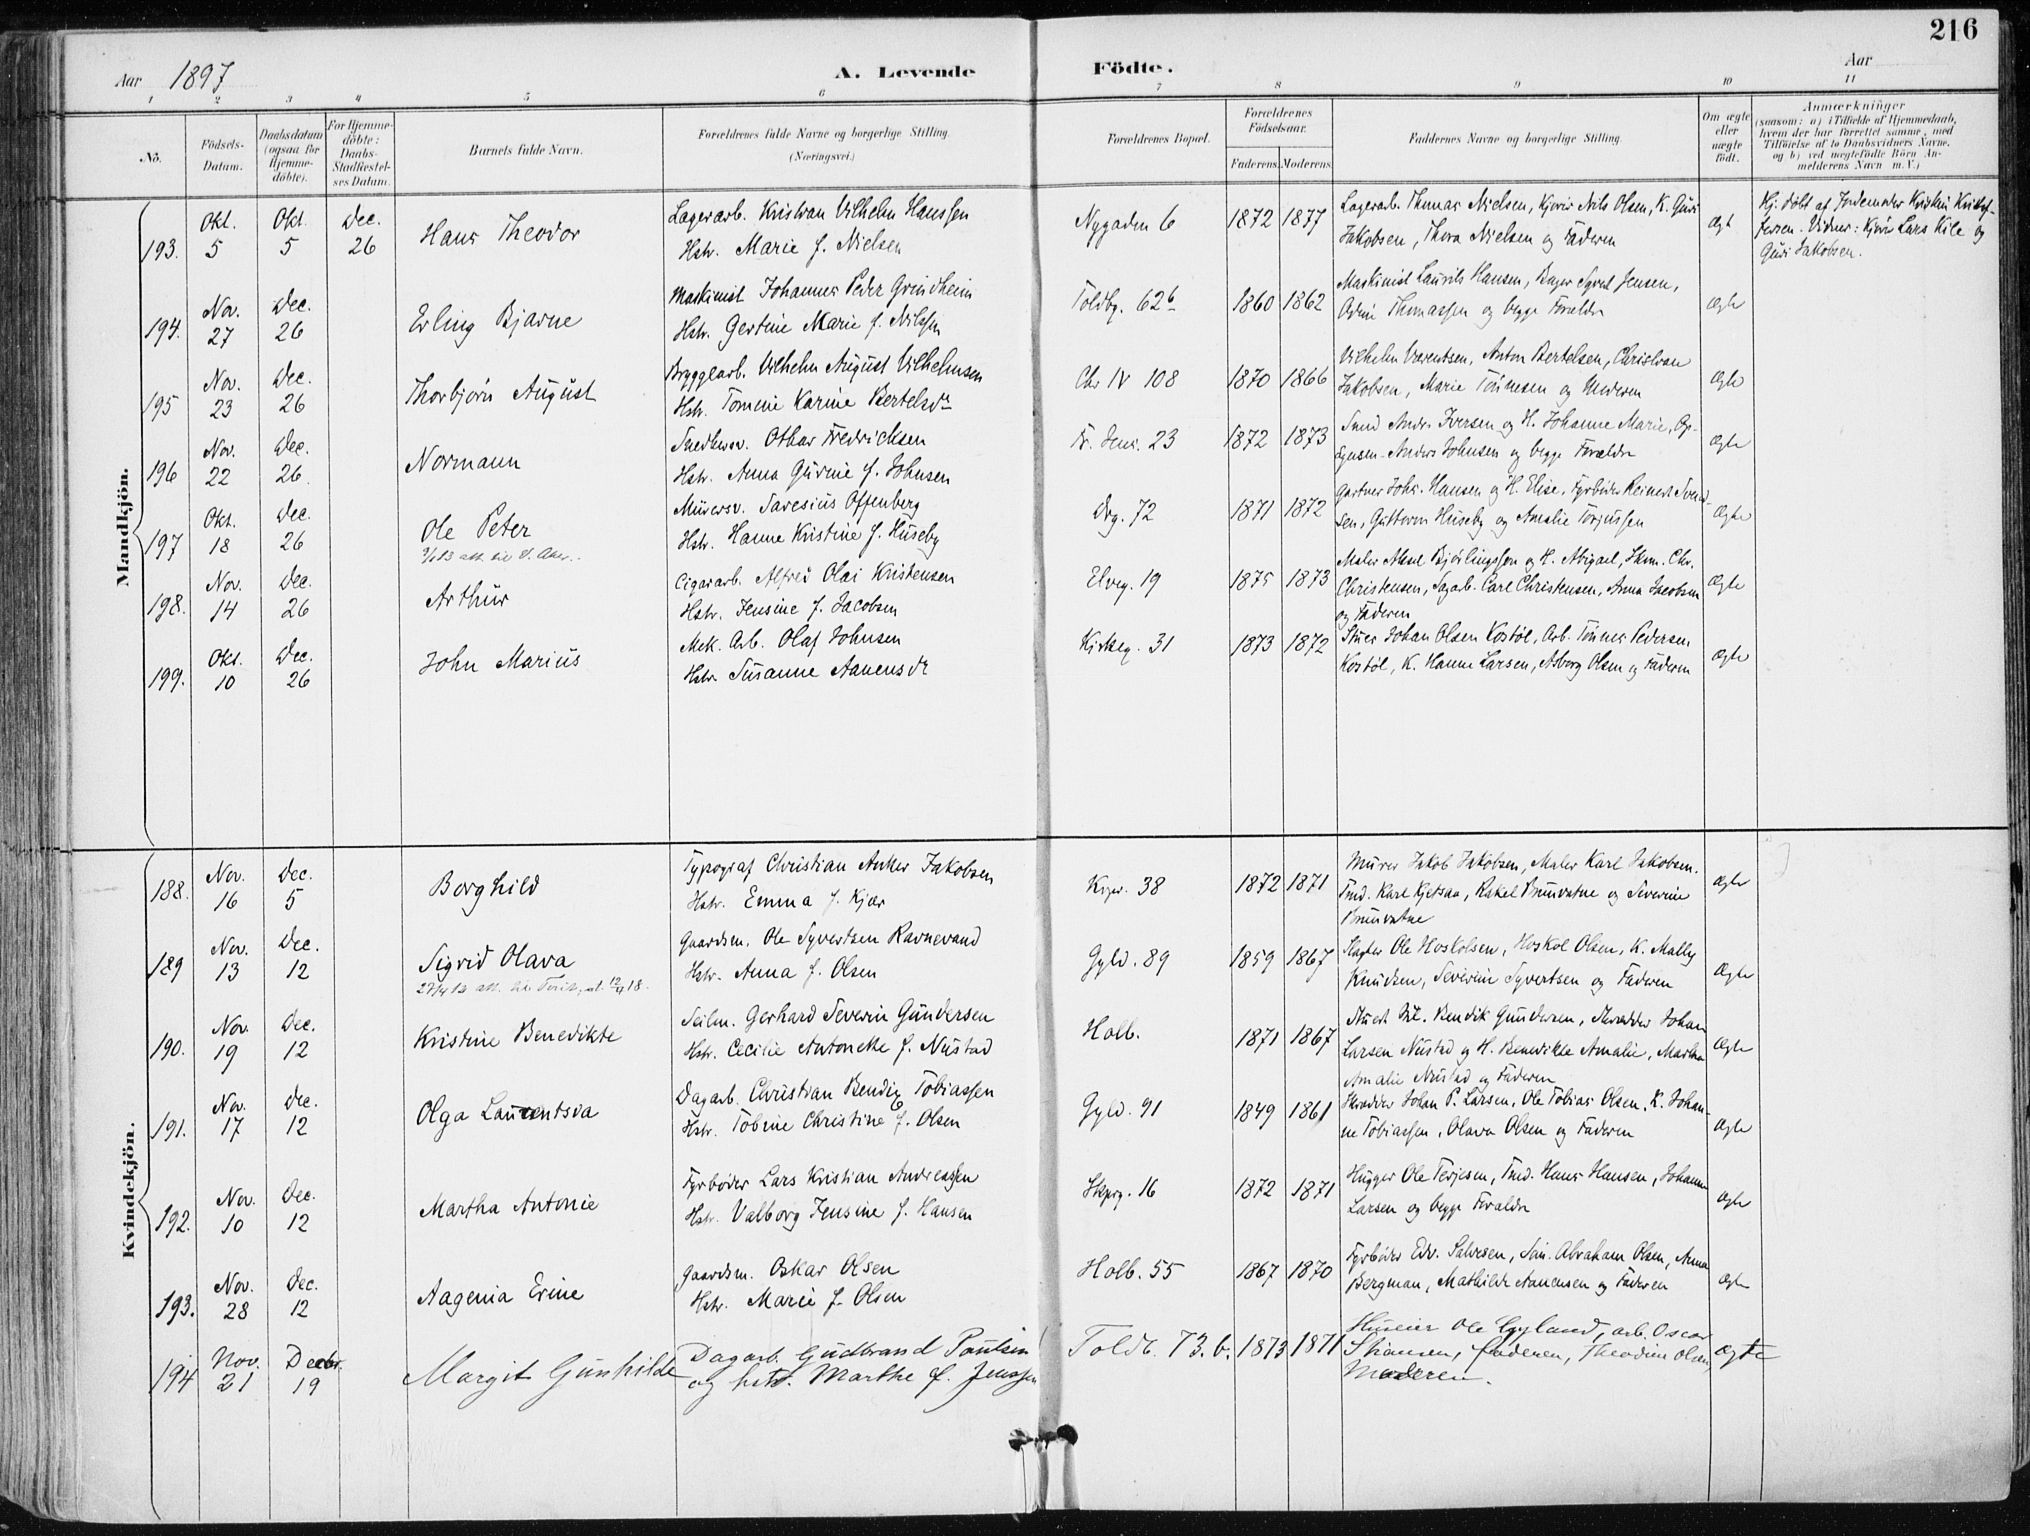 216
Aar 1897
A. Levende Födte.
Aar
1 2 3 4 5 6 7 8 9 10 11
No.
Födsels-Datum.
Daabsdatum (ogsaa for Hjemme-döbte).
For Hjemme-döbte: Daabs-Stadfæstel-ses Datum.
Barnets fulde Navn.
Forældrenes fulde Navne og borgerlige Stilling. (Næringsvei.)
Forældrenes Bopæl.
Forældrenes Födselsaar.
Faderens. Moderens.
Faddernes Navne og borgerlige Stilling.
Om ægte eller uægte födt.
Anmærkninger (saasom: a) i Tilfælde af Hjemmedaab, hvem der har forrettet samme, med Tilföielse af to Daabsvidners Navne, og b) ved uægtefödte Börn An-melderens Navn m. V.)
Mandkjön.
193. Okt. 5 Okt. 5 Dec. 26 Hans Theodor
Lagerarb. Kristian Vilhelm Hanssen
Hstr. Marie f. Nielsen
Nygaden 6 1872 1877
Lagerarb. Thomas Nielsen, Kjører Nils Olsen, K. Guri
Jakobsen, Thora Nielsen og Faderen
ægt
Hj. döbt af Jordemoder Kristin Kristof-
fersen. Vidner: Kjører Lars Kile og
Guri Jakobsen.
194. Nov. 27 Dec. 26 Erling Bjarne
Maskinist Johannes Peder Grindheim
Hstr. Gertine Marie f. Nilssen
Toldbg. 62b 1860 1862
Maskinist Laurits Hansen, Bager Syvert Jensen,
Thomassen og begge Forældre
ægte
195 Nov. 23 Dec. 26 Thorbjörn August
Bryggearb. Vilhelm August Vilhelmsen
Hstr. Tomine Karine Bertelsdr
Chr IV 108 1870 1866
Vilhelm Anton Bertelsen, Christian
Jakobsen, Marie Tönnesen og Moderen
ægte
196 Nov. 22 Dec. 26. Normann
Smedksv. Othar Fredricksen
Hstr. Anna Gurine f. Johnsen
Fr. Jens. 23 1872 1873
Smed Andr. Iversen og H. Johanne Marie,
Anders Johnsen og begge Forældre
ægte
197 Okt. 18 Dec. 26 Ole Peter
Murersv. Saresius Offenberg
Hstr. Hanne Kristine f. Huseby
Drg. 72 1871 1872
Gartner Johs. Hansen og H. Elise, Fyrböder Reinert Svend-
sen, Guttorm Huseby og Amalie Torjussen
ægte
198. Nov. 14 Dec. 26 Arthur
Cigararb. Alfred Olai Kristensen
Hstr. Jensine f. Jacobsen
Elveg. 19 1875 1873
Maler Aksel Bjørlingssen og H. Abigael, Skm. Chr.
Christensen, Sagarb. Carl Christensen, Anna Jacobsen
og Faderen
ægte
199. Okt. 10 Dec. 26 John Marius
Mek. Arb. Olaf Johnsen
Hstr Susanne Aanensdr
Kirkeg. 31 1873 1872
Stuer Johan Olsen Kostöl, Arb. Tönnes Pedersen
Kostöl, K. Hanne Larsen, Asborg Olsen og Faderen
ægte
Kvindekjön.
188. Nov. 16 Dec. 5 Borghild
Typograf Christian Anker Jakobsen
Hstr. Emma f. Kjær
Kigw. 38 1872 1871
Murer Jakob Jakobsen, Maler Karl Jakobsen.
Tmd. Karl Kjetsaa, Rakel Bruuvatne og Severine
Bruuvatne
ægte
189 Nov. 13 Dec. 12 Sigrid Olava
Gaardsm. Ole Syvertsen Ravnevand
Hstr. Anna f. Olsen
Gyld. 89 1859 1867
Slagter Ole Hoskolsen, Hoskol Olsen, K. Mally
Knudsen, Severine Syvertsen og Faderen
ægte
190. Nov. 19 Dec. 12 Kristine Benedikte
Seilm. Gerhard Severin Gundersen
Hstr. Cecilie Antonette f. Nustad
Holb. 1871 1867
Bendik Gundersen, Skrædder Johan
Larsen Nustad og H. Benedikte Amalie, Martha
Amalie Nustad og Faderen
ægte
191. Nov. 17 Dec. 12 Olga Laurentsia
Dagarb. Christian Bendix Tobiassen
Hstr. Tobine Christine f. Olsen
Gyld. 91 1849 1861
Skrædder Johan P. Larsen, Ole Tobias Olsen, K. Johan-
ne Tobiassen, Olava Olsen og Faderen
ægte
192. Nov. 10 Dec. 12 Martha Antonie
Fyrböder Lars Kristian Andreassen
Hstr. Valborg Jensine f. Hansen
Skprg. 16 1872 1871
Hugger Ole Terjesen, Tmd. Hans Hansen, Johanne
Larsen og begge Forældre
ægte
193. Nov. 28 Dec. 12 Aagenia Erine
Gaardsm. Oskar Olsen
Hstr. Marie f. Olsen
Holb. 55 1867 1870
Fyrböder Edv. Salvesen, Abraham Olsen, Anna
Bergman, Mathilde Aanensen og Faderen
ægte
194 Nov. 21 Decbr. 19 Margit Gunhilde
Dagarb. Gudbrand Paulsen
og hstr. Marthe f. Jenssen
Toldb. 73.b. 1873 1871
Huseier Ole Gyland, arb. Oscar
Johansen, faderen, Theodine Olsen,
Moderen.
ægte